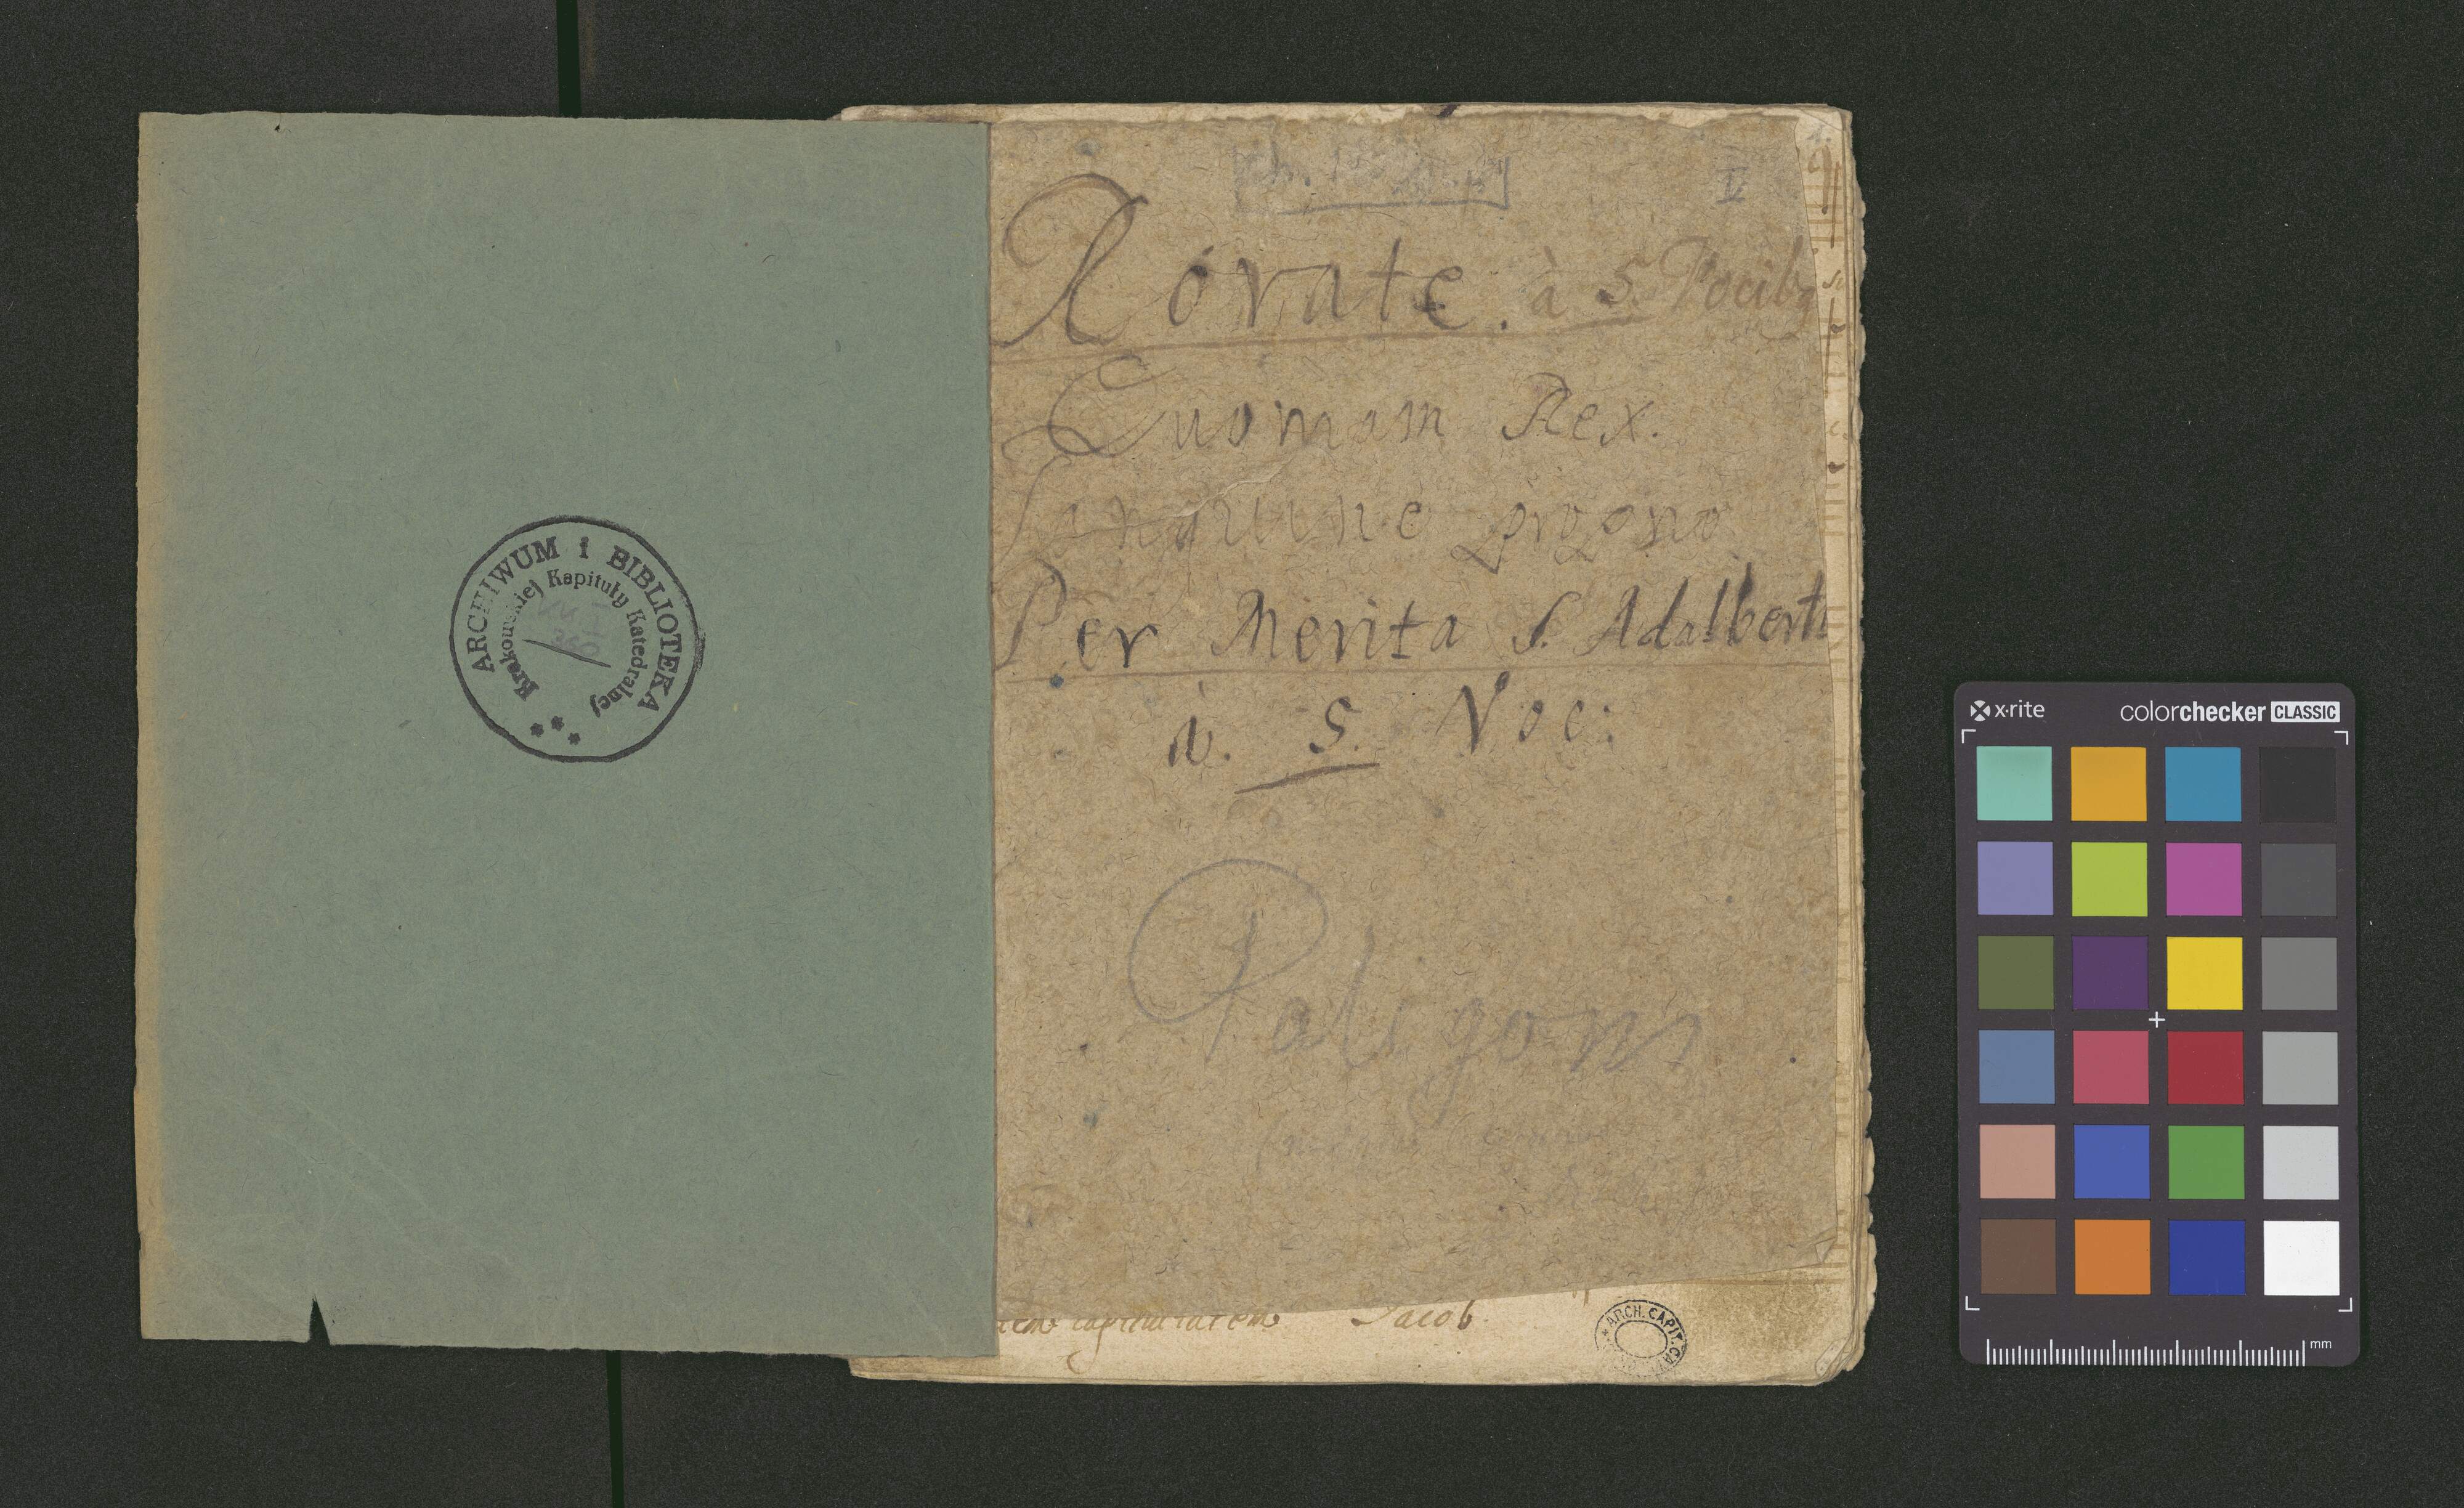 ARCHIWUM i BIBLIOTEKA
Krakowskiej Kapituły Katedralnej
V
Rorate. à 5. Vocibꝫ
Quoniam Rex.
Sanguine proprio
Per Merita S. Adalberti
à. 5. Voc:
Paligoni
capitulatem Jacob.
ARCH. CAPIT.
x·rite colorchecker CLASSIC
mm